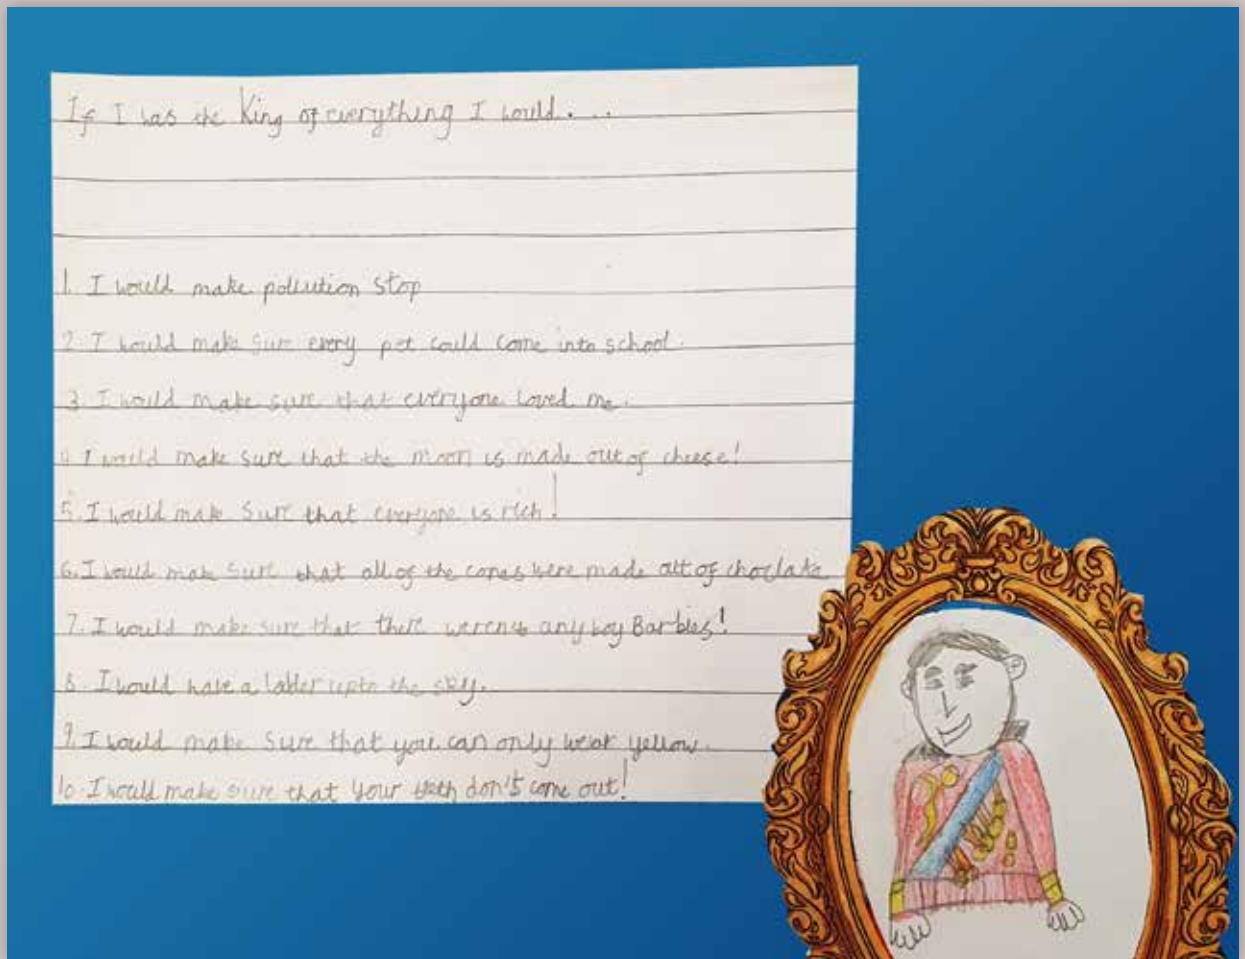 If I was the King of everything I would. . .
1. I would make pollution stop
2. I would make sure every pet could come into school.
3. I would make sure that everyone loved me.
4 I would make sure that the moon is made out of cheese!
5. I would make sure that everyone is rich!
6. I would make sure that all of the cones were made out of choclate
7. I would make sure that there weren't any boy Barbies!
8. I would have a ladder upto the sky.
9. I would make sure that you can only wear yellow.
10. I would make sure that your teeth don't come out!